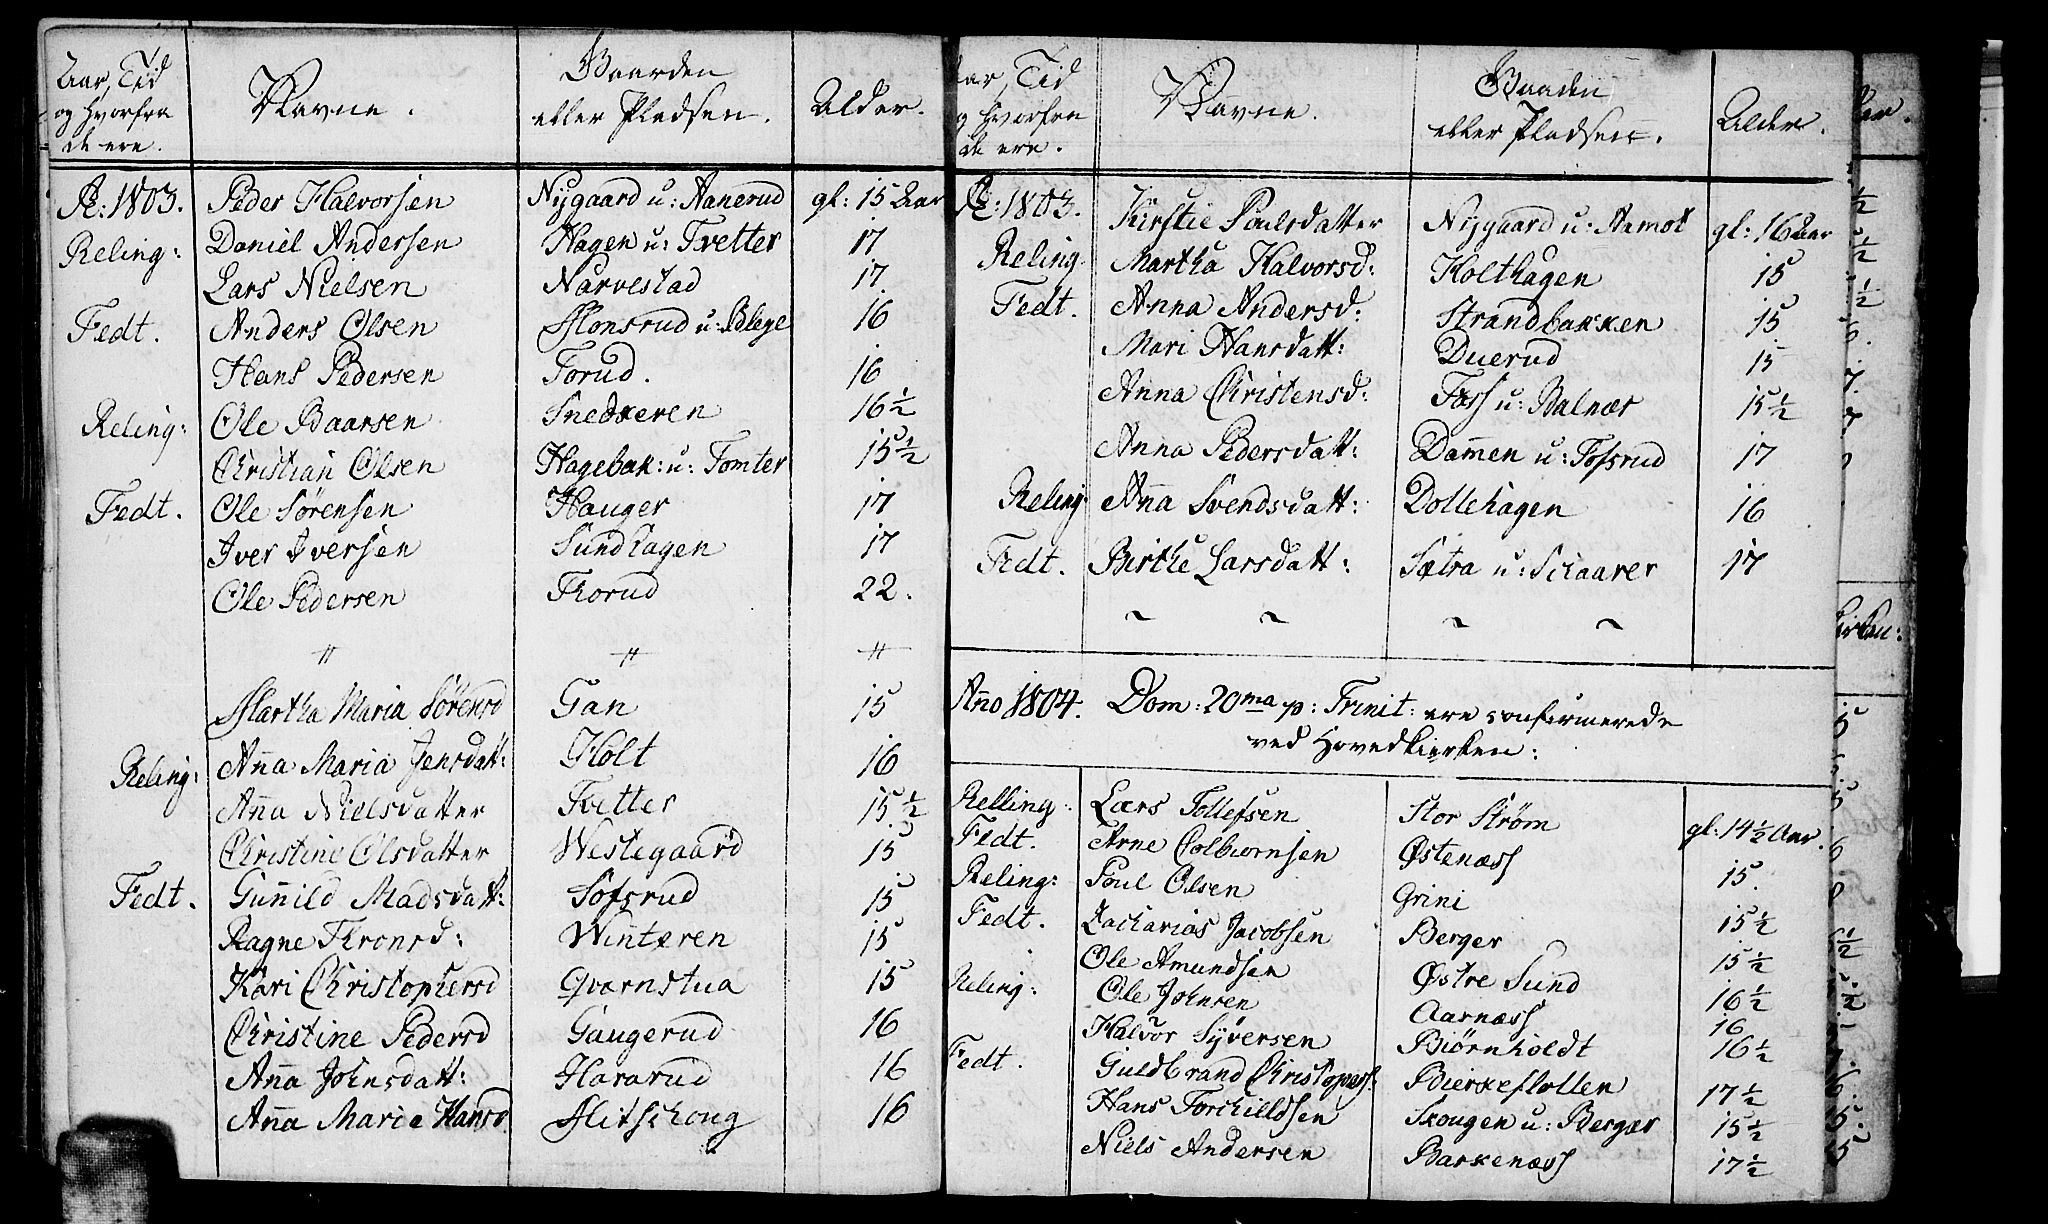 Aar, Tid og hvorfra de ere. | Navne. | Gaarden eller Pladsen. | Alder.
Ao: 1803. | Peder Halvorsen | Nygaard u: Aanerud | gl: 15 Aar
Reling: | Daniel Andersen | Hagen u: Tvetter | 17
Lars Nielsen | Narvestad | 17.
Fedt. | Anders Olsen | Monsrud u: Blege | 16
Hans Pedersen | Torud. | 16
Reling: | Ole Baarsen | Snedkeren | 16½
Christian Olsen | Hagebak: u: Tomter | 15½
Fedt. | Ole Sørensen | Hauger | 17
Iver Iversen | Sundhagen | 17
Ole Pedersen | Thorud | 22.
Martha Maria Sørensd | Gan | 15
Reling: | Aña Maria Jensdatt: | Holt | 16
Aña Nielsdatter | Tvetter | 15½
Christine Olsdatter | Westegaard | 15
Fedt. | Guñild Madsdatt: | Sofsrud | 15
Ragne Thronsd: | Winteren | 15
Kari Christophersd | Qværnstua | 15
Christine Pedersd | Gaugerud | 16
Aña Johnsdatt: | Hararud | 16
Aña Maria Hansd | Mitschoug | 16
Aar, Tid og hvorfra de ere. | Navne. | Gaarden eller Pladsen. | Alder.
Ao: 1803. | Kirstie Paulsdatter | Nygaard u: Aamot | gl: 16 Aar
Reling. | Martha Halvorsd: | Holthagen | 15
Fedt. | Anna Andersd: | Strandbakken | 15
Mari Hansdatt: | Duerud | 15
Anna Christensd: | Foss u: Balnæs | 15½
Anna Pedersdatt: | Dam̃en u: Tofsrud | 17
Reling | Aña Svendsdatt: | Dollehagen | 16
Fedt. | Birthe Larsdatt: | Sætra u: Schaarer | 17
Año 1804. Dom: 20ma p: Trinit: ere confirmerede
ved Hovedkierken:
Relling: | Lars Tollefsen | Stor Strøm | gl: 14½ Aar.
Fedt. | Arne Colbiornsen | Østenæss | 15.
Reling: | Poul Olsen | Grini | 15½
Fedt. | Zacharias Jacobsen | Berger | 15½
Ole Amundsen | Østre Sund | 16½
Reling: | Ole Johnsen | Aarnæss | 16
Halvor Syversen | Biørnholdt | 16½
Fedt. | Guldbrand Christophers: | Bierkeflotten | 17½
Hans Torchildsen | Skougen u: Berger | 15½
Niels Andersen | Barkenæss | 17½